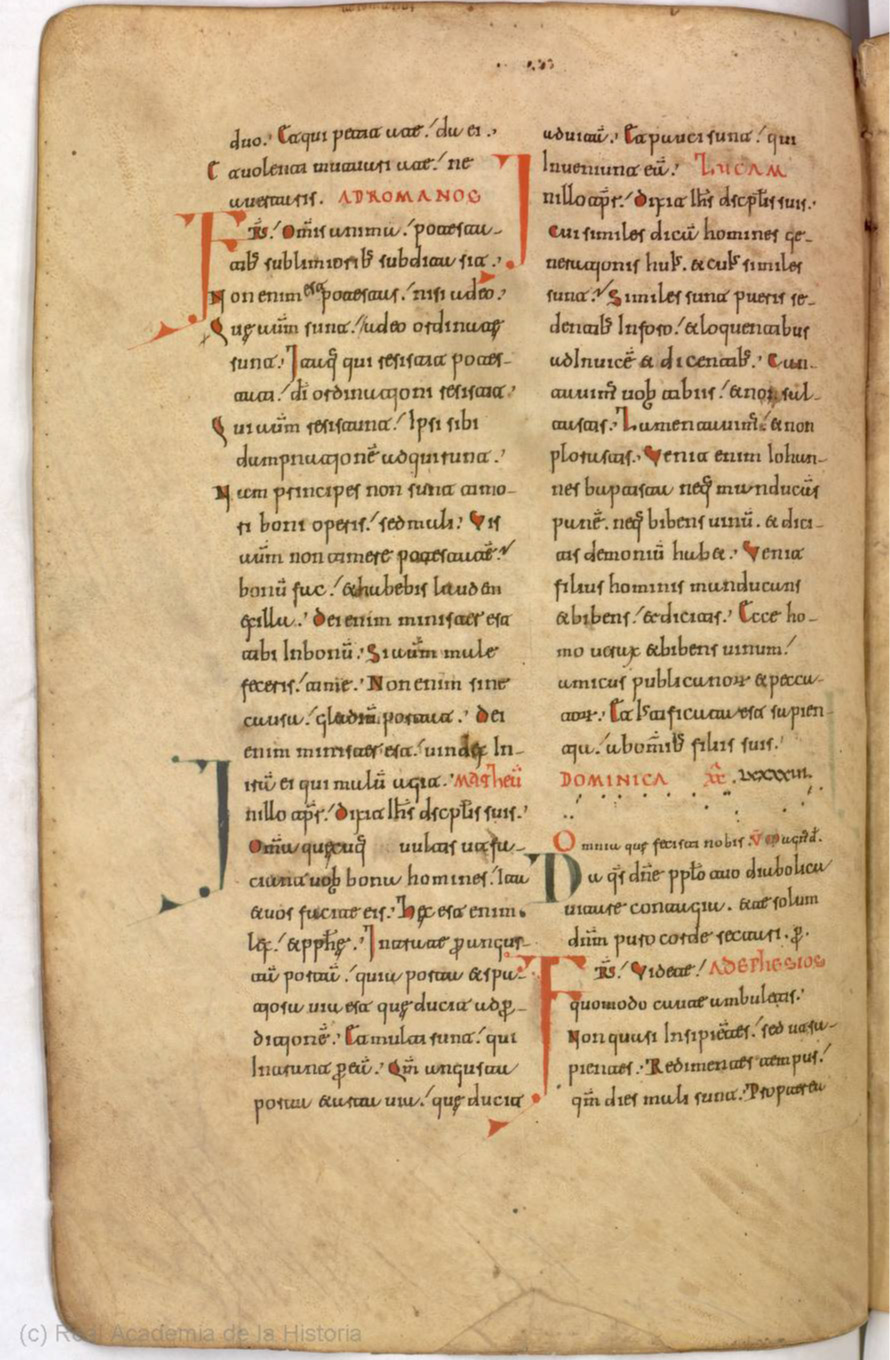 duo. Et qui petit a te da ei.
Et uolenti mutuari a te ne
auertaris. AD ROMANOS
FRS. Omīs anima potesta
tib; sublimiorib; subdita sit.
Non enim est potestas nisi a deo.
Quę aūm sunt a deo ordinatę
sunt. Itaq; qui resistit potes
tati dī ordinationi resistit.
Qui aūm resistunt ipsi sibi
dampnationē adquirunt.
Nam principes non sunt timo
ri boni operis sed mali. Vis
aūm non timere potestatē
bonū fac et habebis laudem
ex illa. Dei enim minister est
tibi in bonū. Si aūm male
feceris time. Non enim sine
causa gladiū portat. Dei
enim minister est uindex in
irā ei qui malū agit. MATHEŪ
In illo tpr. Dixit Ihs dscplis suis.
Omīa quęcūq; uultis ut fa
ciant uob bona homines ita
et uos facite eis. Hęc est enim
lex et pphę. Intrate per angus
tā portā quia porta et spa
tiosa uia est quę ducit ad per
ditionē. Et multi sunt qui
intrant per eā. Qm̄ angusta
porta et arta uia quę ducit
ad uitā. Et pauci sunt qui
inueniunt eā. LUCAM
In illo tpr. Dixit Ihs dscplis suis.
Cui similes dicā homines ge
nerationis huius. et cui similes
sunt. Similes sunt pueris se
dentib; in foro et loquentibus
ad inuicē et dicentib;. Can
tauimus uob tibiis et non sal
tastis. Lamentauimus et non
plorastis. Venit enim Iohan
nes baptista neq; manducās
panē. neq; bibens uinū. et dici
tis demoniū habet. Venit
filius hominis manducans
et bibens et dicitis. Ecce ho
mo uorax et bibens uinum
amicus publicanorum et pecca
torum. Et iustificata est sapien
tia ab omīb; filiis suis.
DOMINICA XX. LXXXIII.
Omnia quę fecisti nobis. V Magnus d.
Da qs dne pplo tuo diabolica
uitare contagia. et te solum
dūm puro corde sectari. per.
FRS. Videte AD EPHESIOS
quomodo caute ambuletis.
Non quasi insipientes sed ut sa
pientes. Redimentes tempus
qm̄ dies mali sunt. Propterea